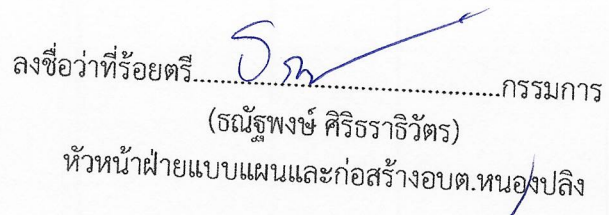 ลงชื่อว่าที่ร้อยตรี......................................................กรรมการ
(ธณัฐพงษ์ ศิริธราธิวัตร)
หัวหน้าฝ่ายแบบแผนและก่อสร้างอบต.หนองปลิง